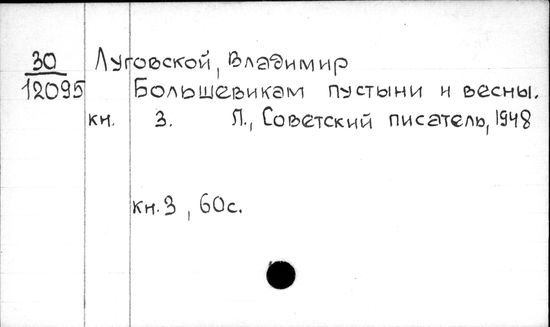 30 Луговской, Владимир
12095 Большевикам пустыни и весны.
кн. 3. Л., Советский писатель, 1948
кн. 3, 60с.